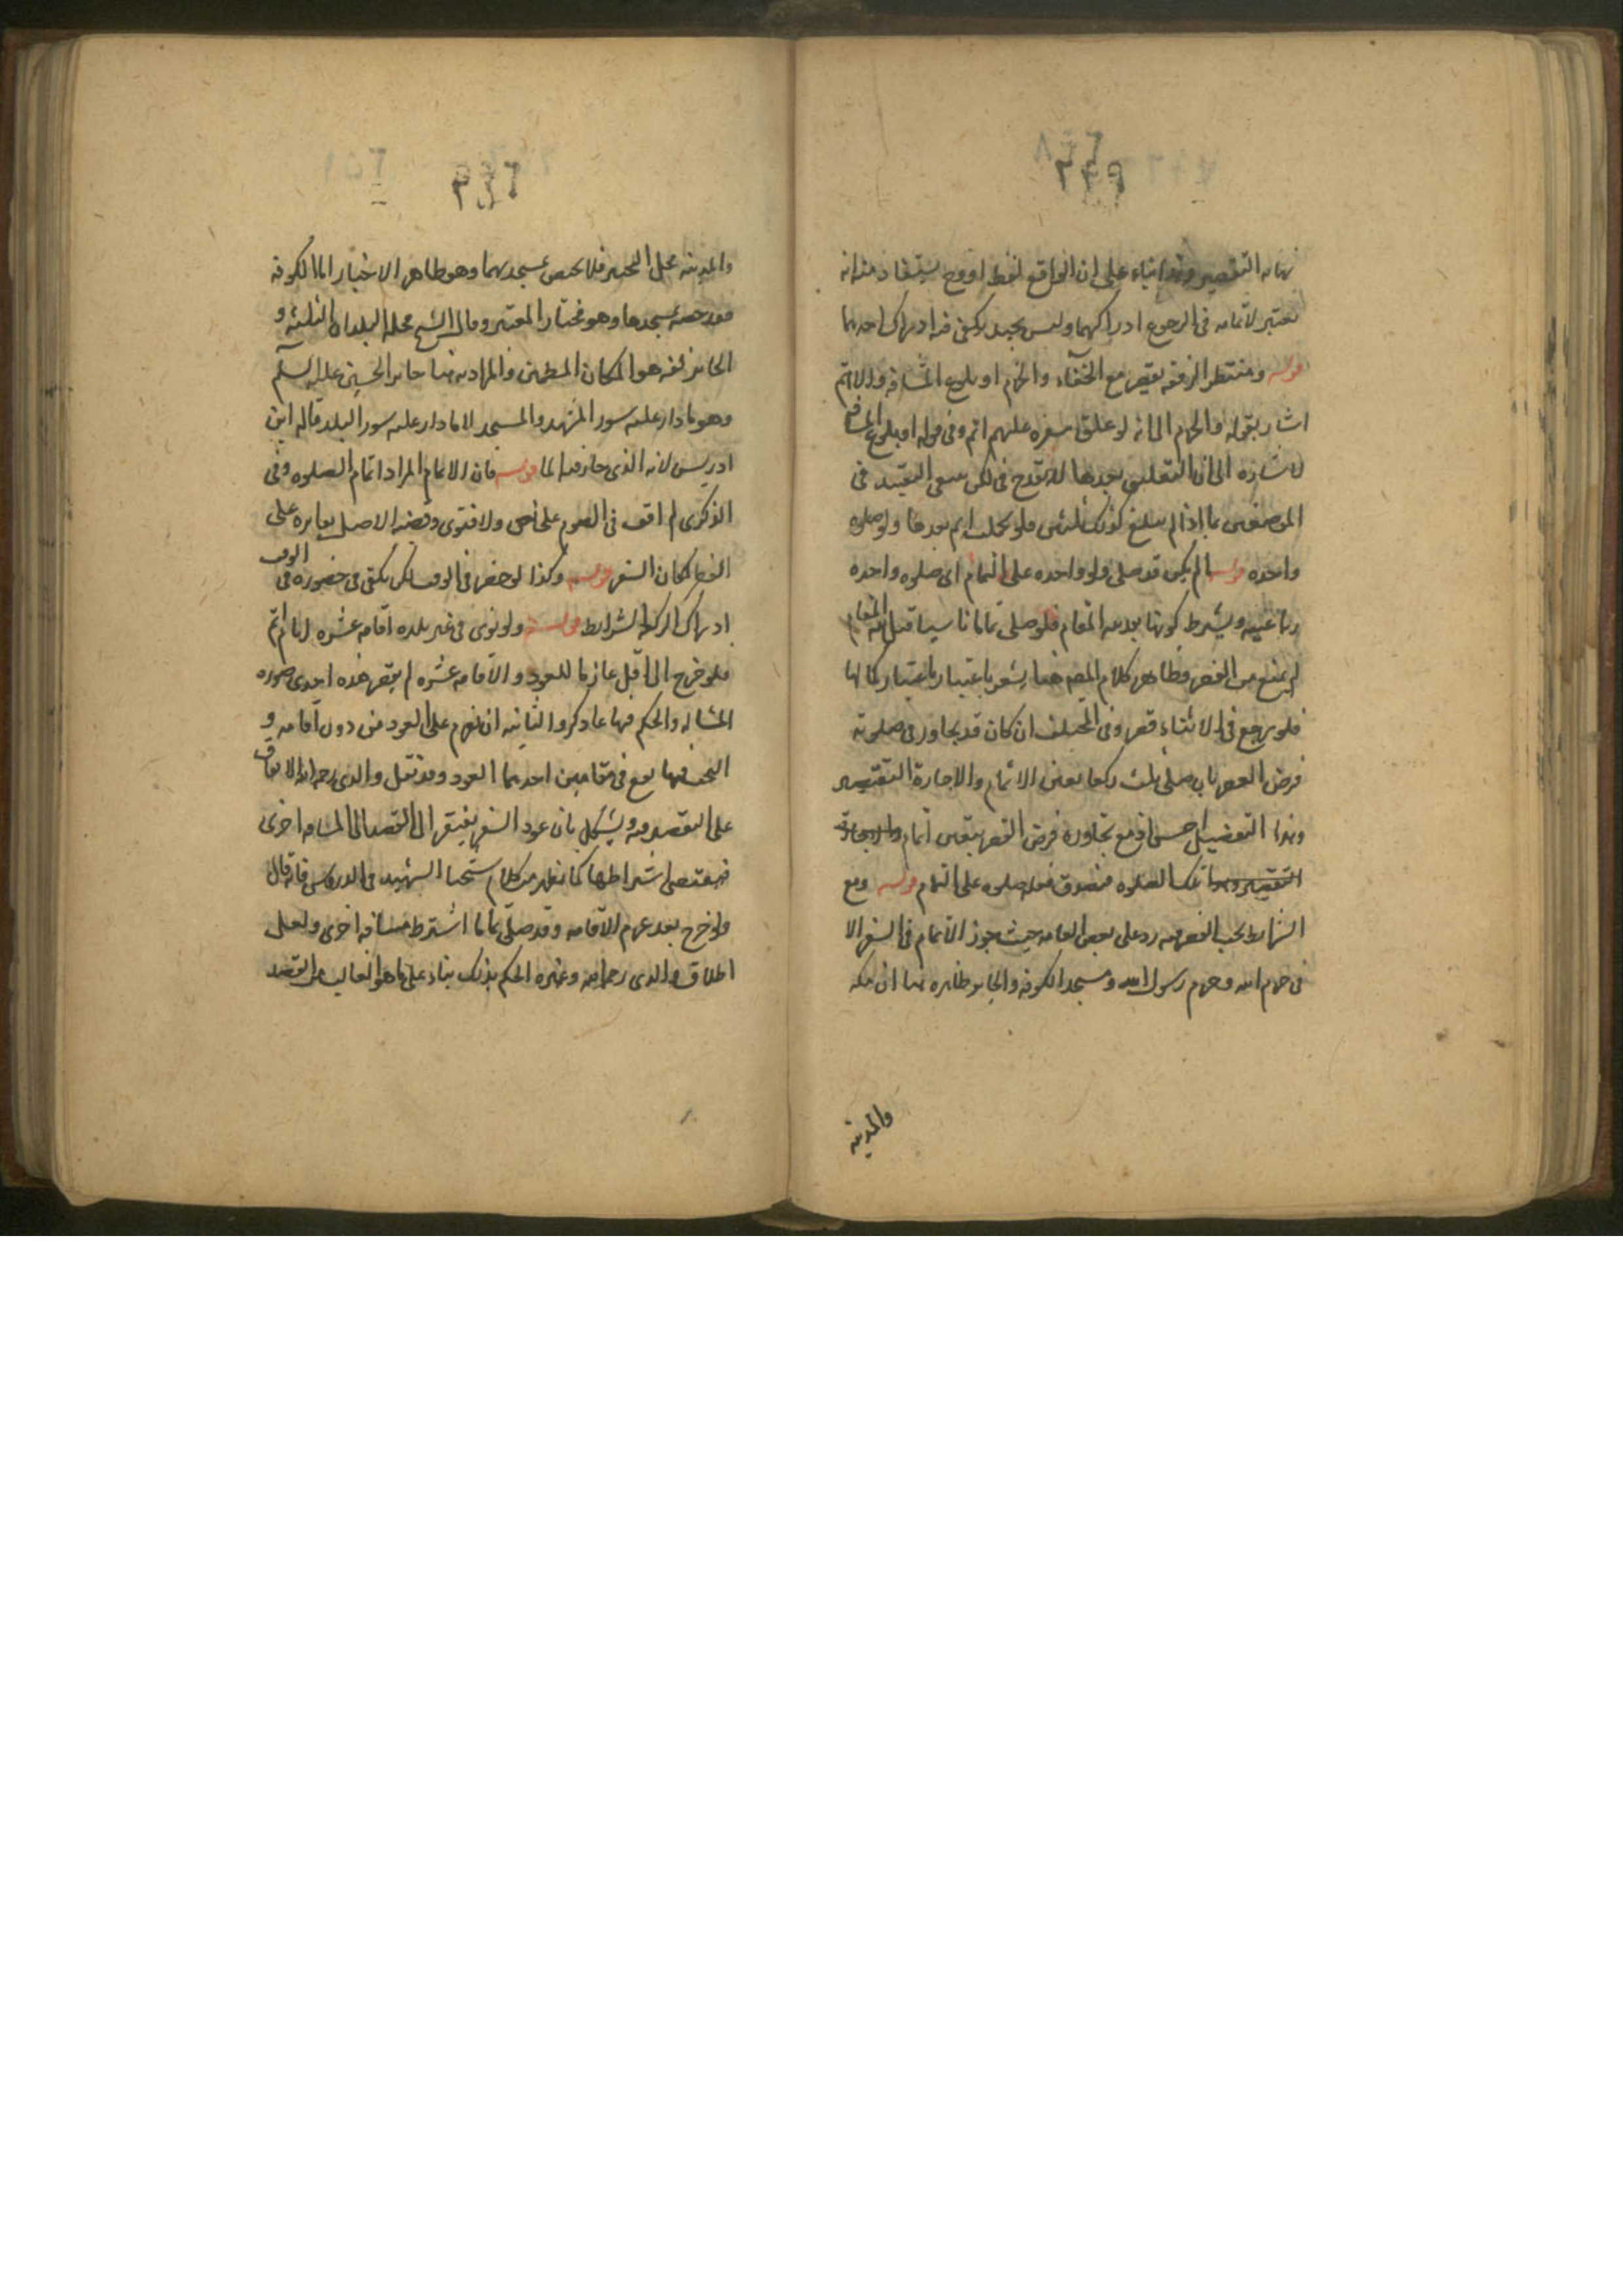 نهايه التقصير وهذا بناء على ان الواقع لفظ او وح يستفاد منه انه
يعتبر لاتمامه فى الرجوع ادراكهما وليس بجيد بل يكفى فيه ادراك احدهما
قوله ومنتظر الرفقه يقصر مع الخفاء والجزم او بلوغ المسافه والا اتم
اشار بقوله والجزم الى انه لو علق سفره عليهم اتم وفى قوله او بلوغ المسافه
لاشاره الى ان التعليق بعدها لا يقدح فى لكن ينبغى التقييد فى
الموضعين بما اذا لم يبلغ كذلك ثلثين فلو كملت اتم بعدها ولو صلوه
واحده قوله الم يكن قد صلى ولو واحده على التمام اى صلوه واحده
رباعيه ويشترط كونها بعد نيه المقام فلو صلى تماما ناسيا قبل نيه المقام
لم يمنع من القصر وظاهر كلام المص هنا يشعر باعتبار باعتبار كمالها
فلو رجع فى الاثناء قصر وفى المختلف ان كان قد تجاوز فى صلوته
فرض القصر بان صلى ثلث ركعا تعين الاتمام والا جازة التقصير
وهذا التفصيل احسن اذ مع تجاوزه فرض القصر يتعين اتمام
تلك الصلوه فيصدق فعل صلوه على التمام قوله ومع
الشرايط يجب القصر فيه رد على بعض العامه حيث جوز الاتمام فى السفر الا
فى حرم الله وحرم رسول الله ومسجد الكوفه والحاير ظاهره هنا ان مكه
والمدينه
والمدينه محل التخيير فلا يختص بمسجديهما وهو ظاهر الاخبار اما الكوفه
فقد خصه بمسجدها وهو مختار المعتبر وقال الشيخ محله البلدان الثلثه و
الحاير لغه هو المكان المطمئن والمراد به هنا حاير الحسين عليه السلم
وهو ما دار عليه سور المشهد والمسجد لا ما دار عليه سور البلد قاله ابن
ادريس لانه الذى حار فيه الما قوله فان الاتمام المراد اتمام الصلوه وفى
الذكرى لم اقف فى الصوم على نص ولا فتوى وقضيه الاصل بقاءه على
القصر لمكان السفر قوله وكذا لو حضر فى الوقت لكن يكفى فى حضوره فى الوقت
ادراك الركعه الشرايط قوله ولو نوى فى غير بلده اقامه عشره ايام اتم
فلو خرج الى اقل عازما للعود والاقامه عشره لم يقصر هذه احدى صوره
المسئله والحكم فيها ما ذكر والثانيه ان يعزم على العود من دون اقامه و
البحث فيها يقع فى مقامين احدهما العود وقد نقل والدى رحمه الله الاتفاق
على التقصير فيه ويشكل بان عود السفر يفتقر الى القصد الى المسافه اخرى
فيقتضى اشتراطها كما يظهر من كلام شيخنا الشهيد فى الدروس فانه قال
ولو خرج بعد عزم الاقامه وقد صلى تماما اشترط مسافه اخرى ولعل
اطلاق والدى رحمه الله وغيره الحكم بذلك بناء على ما هو الغالب من القصد